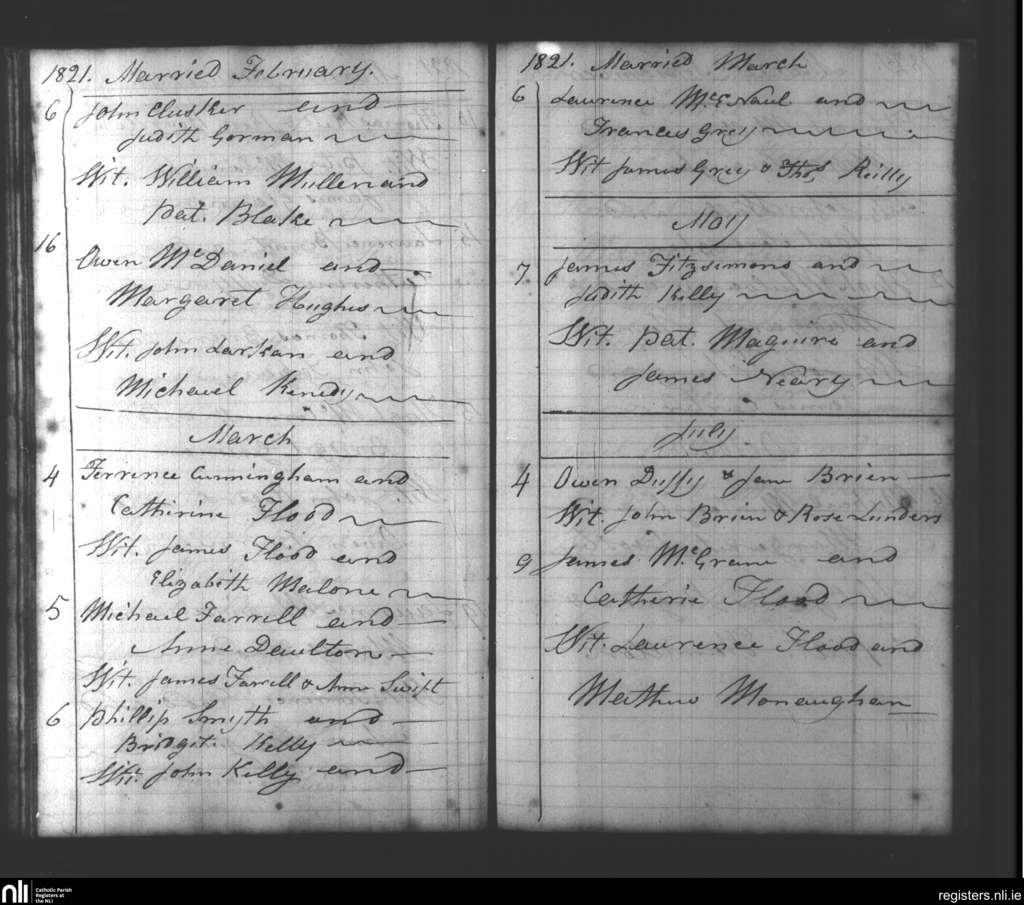 1821. Married February.
6 John Clusker and
Judith Gorman
Wit. William Mullen and
Pat. Blake
16 Owen McDaniel and
Margaret Hughes
Wit. John Larkan and
Michael Kenedy
March
4 Terrence Cunningham and
Catherine Flood
Wit. James Flood and
Elizabeth Malone
5 Michael Farrell and
Anne Daulton
Wit. James Farrell & Anne Swift
6 Phillip Smyth and
Bridget. Kelly
Wit. John Kelly and
1821. Married March
6 Laurence McNaul and
Frances Grey
Wit James Grey & Thos Reilly
May
7 James Fitzsimons and
Judith Kelly
Wit. Pat. Maguire and
James Neary
July
4 Owen Duffy & Jane Brien
Wit. John Brien & Rose Lunders
9 James McGrane and
Catherine Flood
Wit. Laurence Flood and
Mathew Monaughan
nli Catholic Parish
Registers at
the NLI
registers.nli.ie